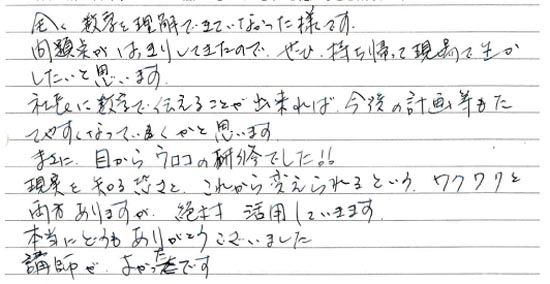 全く数字を理解できていなかった様です。
問題点がはっきりしてきたので、ぜひ、持ち帰って現場で生か
したいと思います。
社長に数字で伝えることが出来れば、今後の計画等もた
てやすくなっていくかと思います。
まさに、目からウロコの研修でした!!
現実を知る恐さと、これから変えられるという、ワクワクと
両方ありますが、絶対活用していきます。
本当にどうもありがとうございました
講師が、よかったです